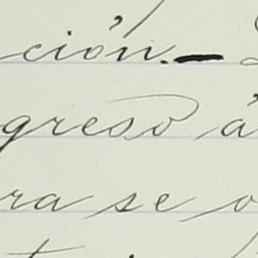 ción.—
greso á
ra se